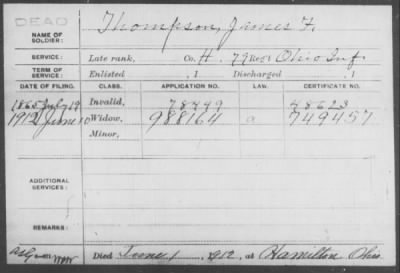 DEAD
NAME OF SOLDIER: Thompson, James F.
SERVICE: Late rank, Co. H. 79 Reg't Ohio Inf.
TERM OF SERVICE: Enlisted , 1 Discharged , 1
DATE OF FILING. CLASS. APPLICATION NO. LAW. CERTIFICATE NO.
1865 July 19 Invalid, 78449 48623
1912 June 10 Widow, 988164 a 749457
Minor,
ADDITIONAL SERVICES:
REMARKS:
Died June 1, 1912, at Hamilton Ohio